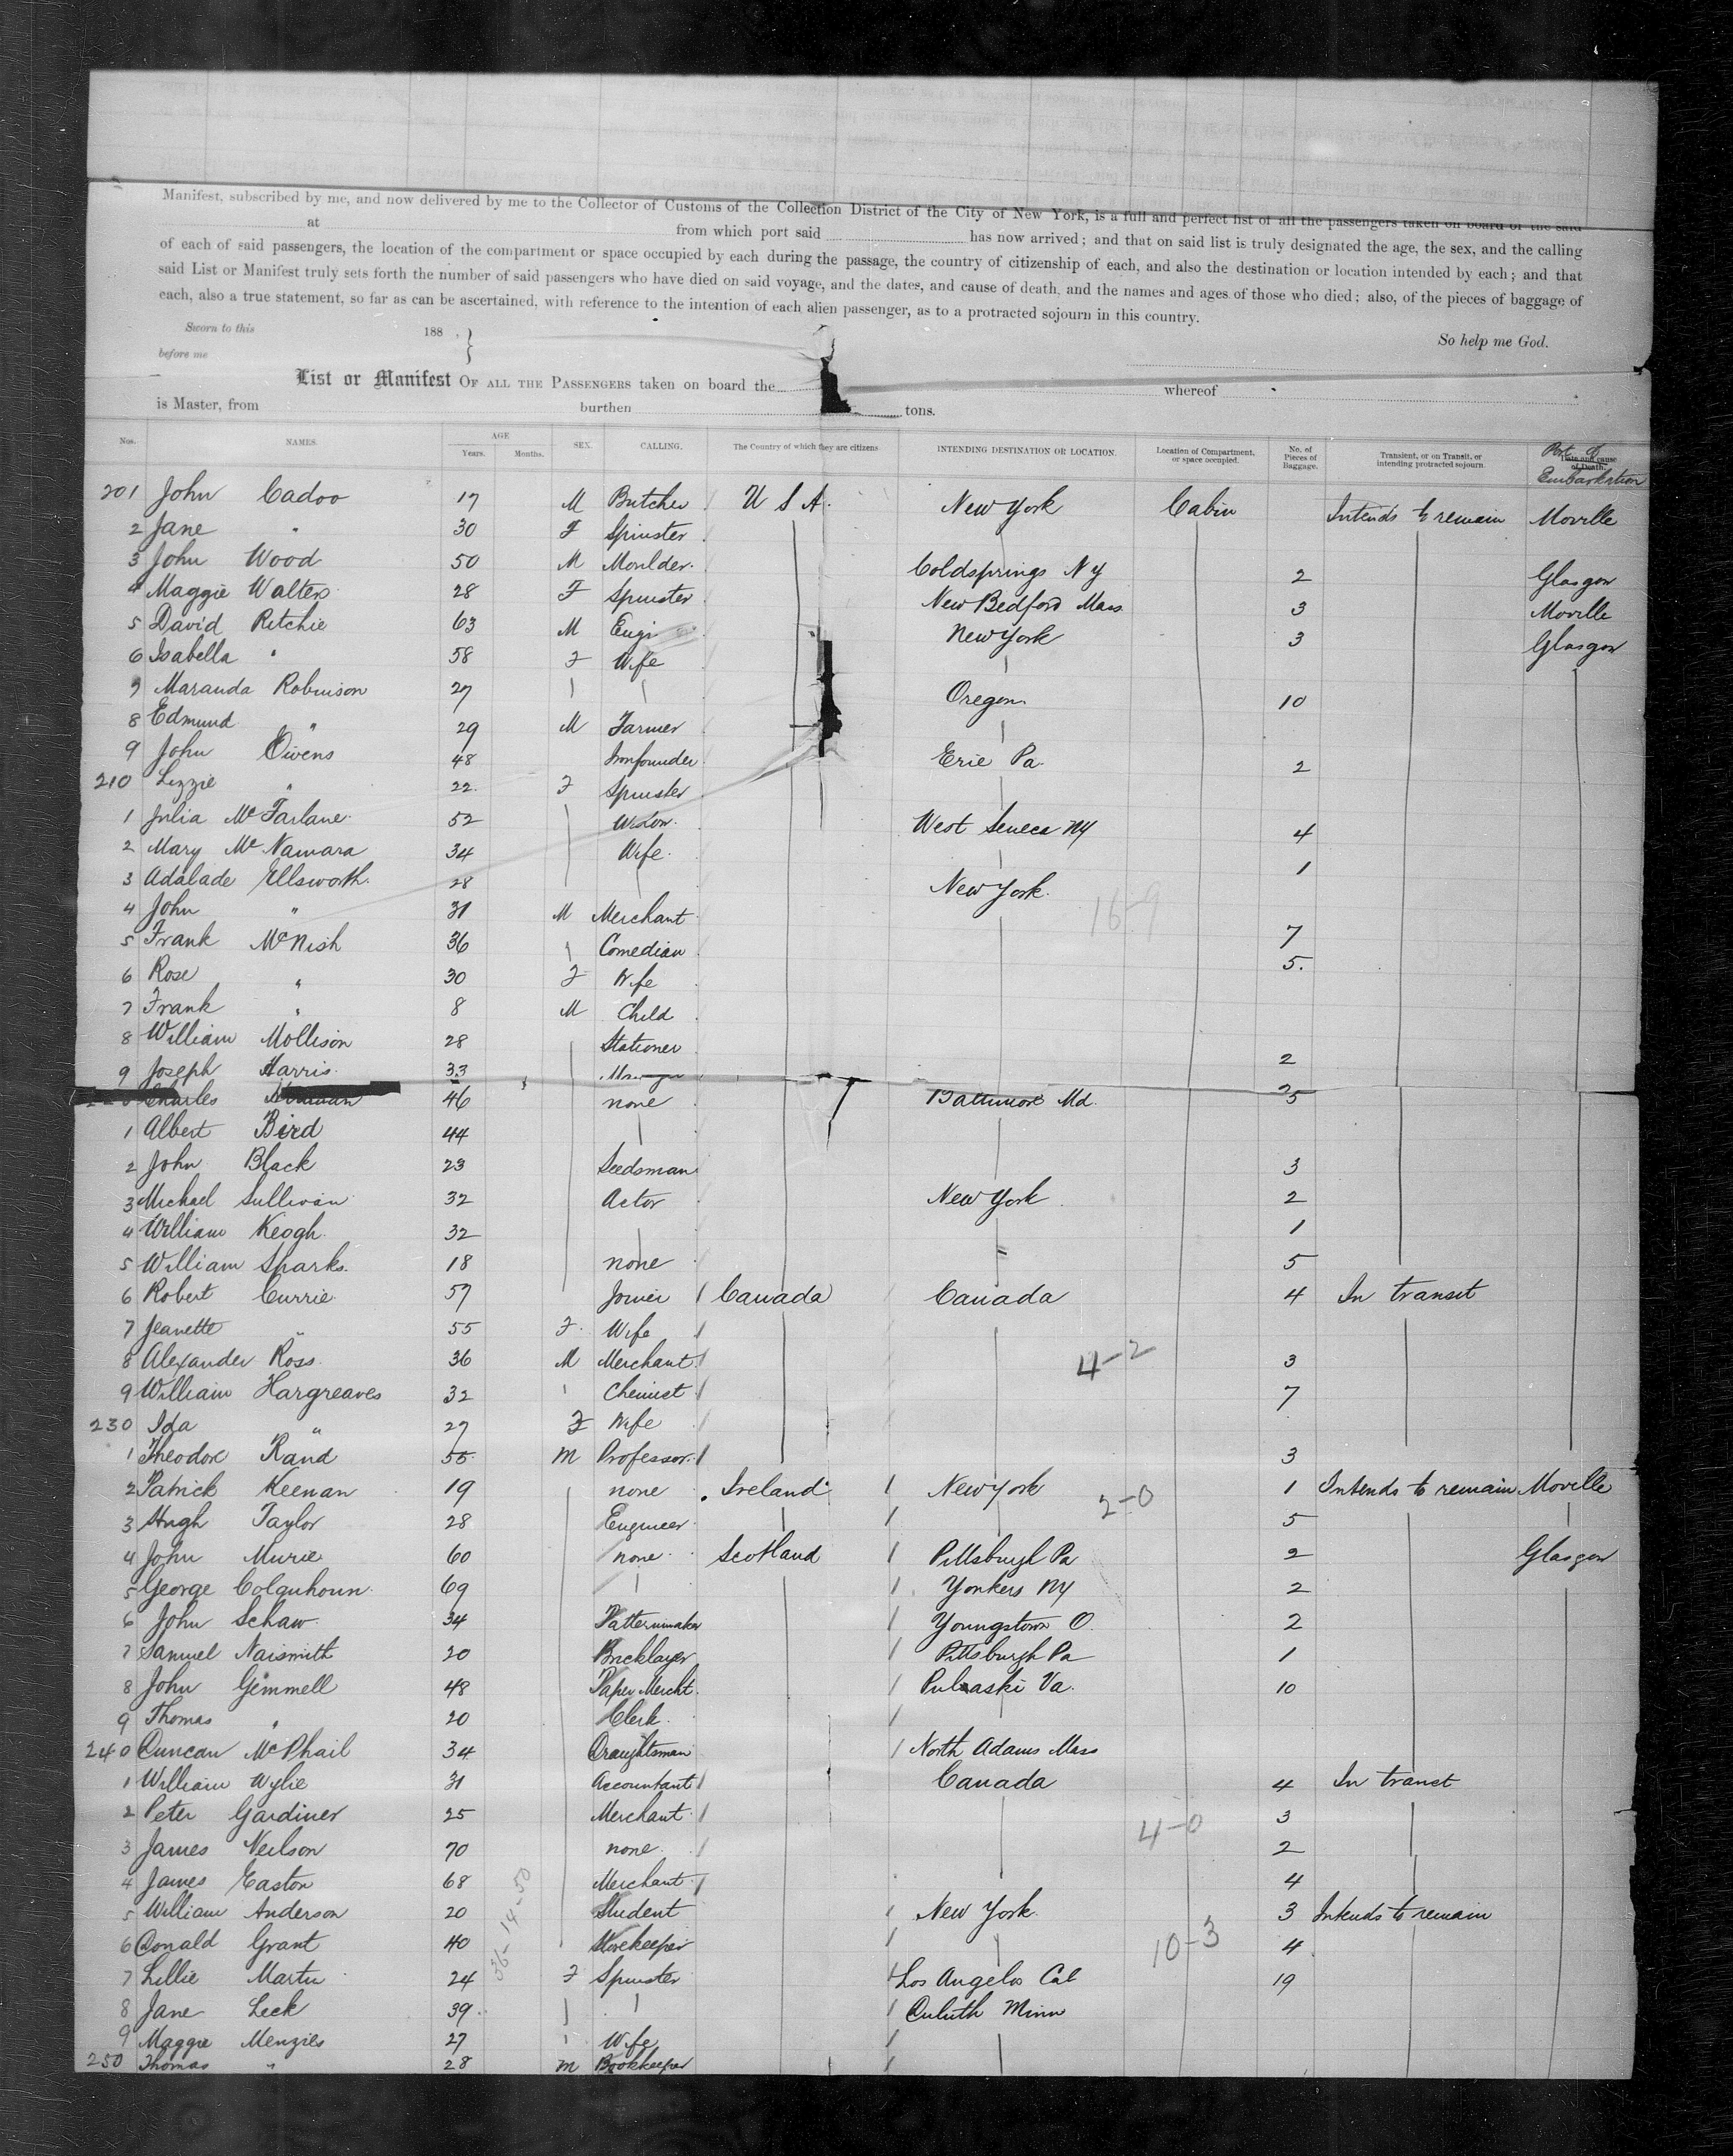 Manifest, subscribed by me, and now delivered by me to the Collector of Customs of the Collection District of the City of New York, is a full and perfect list of all the passengers taken on board of the said
at from which port said has now arrived; and that on said list is truly designated the age, the sex, and the calling
of each of said passengers, the location of the compartment or space occupied by each during the passage, the country of citizenship of each, and also the destination or location intended by each; and that
said List or Manifest truly sets forth the number of said passengers who have died on said voyage, and the dates, and cause of death, and the names and ages of those who died; also, of the pieces of baggage of
each, also a true statement, so far as can be ascertained, with reference to the intention of each alien passenger, as to a protracted sojourn in this country.
Sworn to this 188 . So help me God.
before me
List or Manifest OF ALL THE PASSENGERS taken on board the whereof
is Master, from burthen tons.
Nos. NAMES. AGE Years. Months. SEX. CALLING. The Country of which they are citizens. INTENDING DESTINATION OR LOCATION. Location of Compartment, or space occupied. No. of Pieces of Baggage. Transient, or on Transit, or intending protracted sojourn. Date and cause of Death. Port of Embarkation
201 John Cadoo 17 M Butcher U S A. New York Cabin Intends to remain Moville
2 Jane " 30 F Spinster
3 John Wood 50 M Moulder. Coldsprings N Y 2 Glasgow
4 Maggie Walters 28 F Spinster New Bedford Mass 3 Moville
5 David Ritchie 63 M Engi New York 3 Glasgow
6 Isabella " 58 F Wife
7 Maranda Robinson 27 Oregon 10
8 Edmund " 29 M Farmer
9 John Owens 48 Ironfounder Erie Pa. 2
210 Lizzie " 22 F Spinster
1 Julia McFarlane 52 Widow. West Seneca NY 4
2 Mary McNamara 34 Wife. 1
3 Adalade Ellsworth 28 New York.
4 John " 31 M Merchant 16-9 7
5 Frank McNish 36 Comedian 5.
6 Rose " 30 F Wife
7 Frank " 8 M Child
8 William Mollison 28 Stationer 2
9 Joseph Harris 33 2
Charles 46 none Baltimore Md. 5
1 Albert Bird 44
2 John Black 23 Seedsman 3
3 Michael Sullivan 32 Actor New York 2
4 William Keogh 32 1
5 William Sparks. 18 none 5
6 Robert Currie 57 Joiner Canada Canada 4 In transit
7 Jeanette " 55 F. Wife
8 Alexander Ross. 36 M Merchant 4-2 3
9 William Hargreaves 32 Chemist 7
230 Ida " 27 F Wife
1 Theodore Rand 55 M Professor. 3
2 Patrick Keenan 19 none Ireland New York 2-0 1 Intends to remain Moville
3 Hugh Taylor 28 Engineer 5
4 John Murie 60 none Scotland Pittsburgh Pa 2 Glasgow
5 George Colquhoun 69 Yonkers NY 2
6 John Schaw 34 Patternmaker Youngstown O. 2
7 Samuel Naismith 20 Bricklayer Pittsburgh Pa 1
8 John Gemmell 48 Paper Mercht. Pulaski Va. 10
9 Thomas " 20 Clerk
240 Duncan McPhail 34 Draughtsman North Adams Mass
1 William Wylie 31 Accountant Canada 4 In transit
2 Peter Gardiner 25 Merchant 3
3 James Neilson 70 none. 4-0 2
4 James Easton 68 Merchant 4
5 William Anderson 20 Student New York 3 Intends to remain
6 Donald Grant 40 Storekeeper 10-3 4
7 Lillie Martin 24 F Spinster Los Angelos Cal 19
8 Jane Leck 39 Duluth Minn
9 Maggie Menzies 27 Wife
250 Thomas " 28 M Bookkeeper